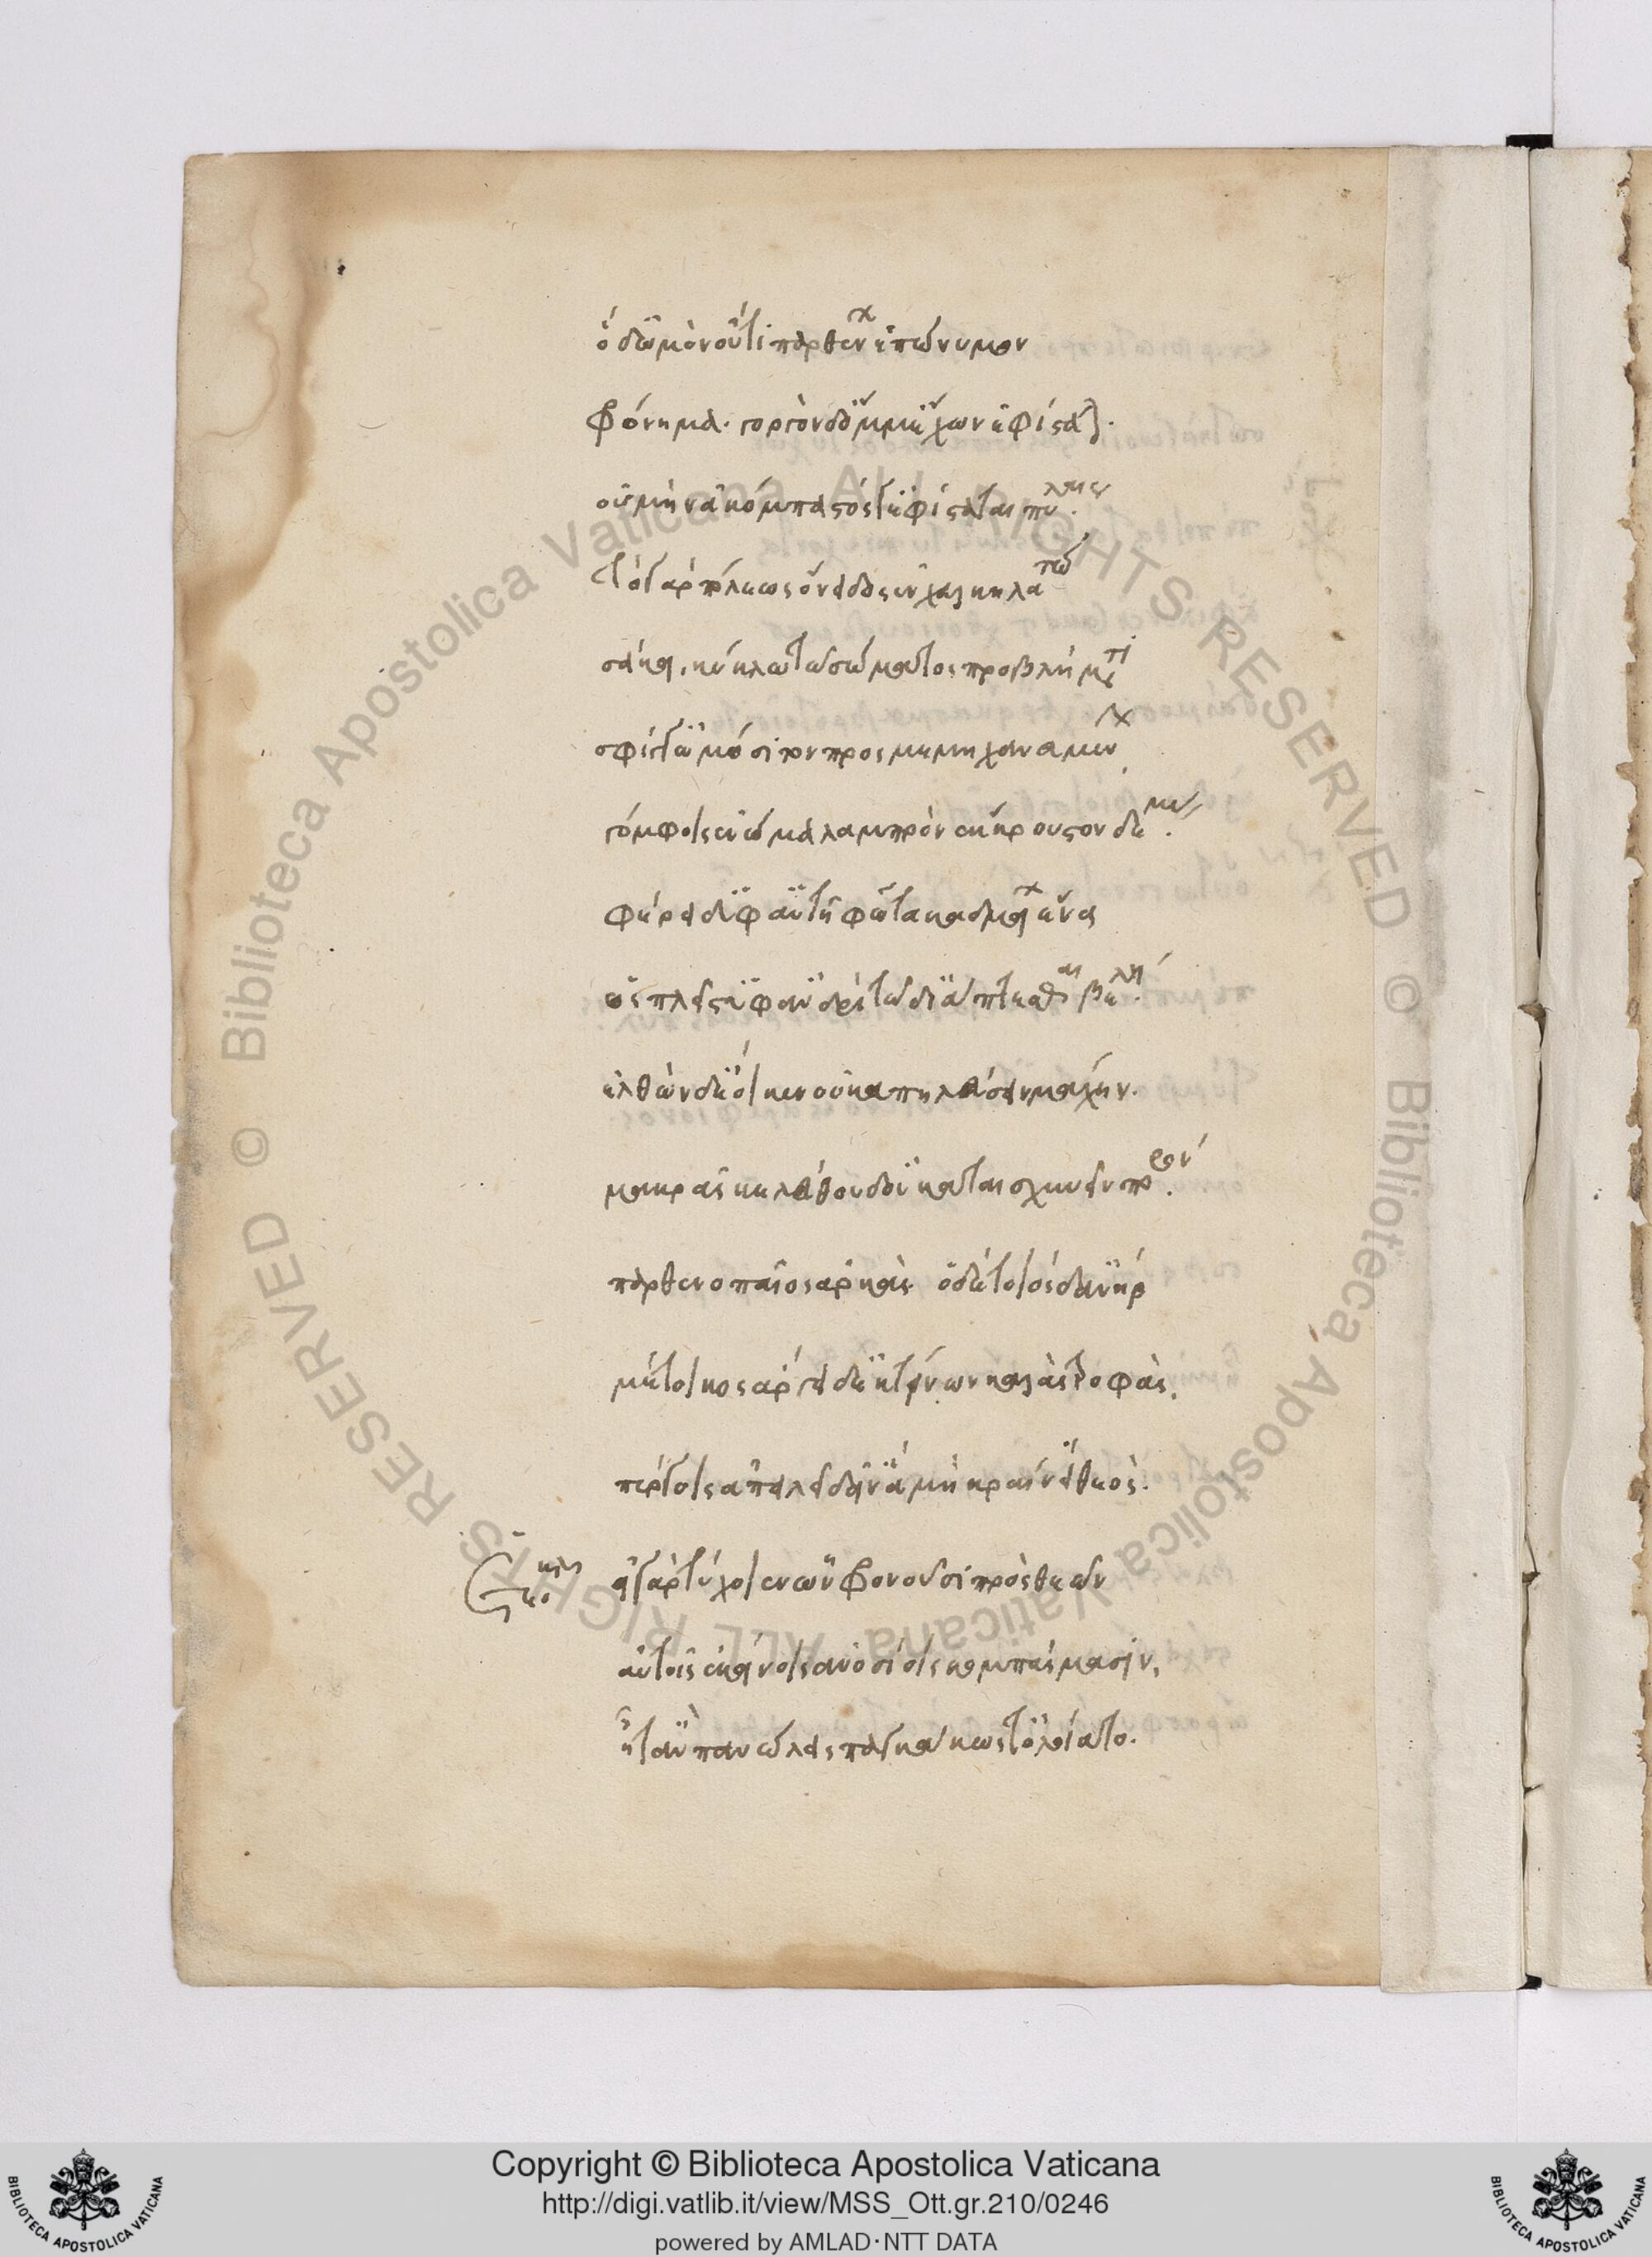 ὁ δ' ὠμὸν οὔτι παρθένων ἐπώνυμον
φρόνημα. γοργὸν δ' ὄμμ' ἔχων ἐφίσταται.
οὐ μὴν ἀκόμπαστός γ' ἐφίσταται πύλαις.
τὸ γὰρ πόλεως ὄνειδος ἐν χαλκηλάτῳ
σάκει, κυκλωτῷ σώματος προβλήματι
σφίγγ' ὠμόσιτον προσμεμηχανημένην
γόμφοις ἐνώμα λαμπρὸν ἔκκρουστον δέμας
φέρει δ' ὑφ' αὑτῇ φῶτα καδμείων ἕνα
ὡς πλεῖστ' ἐπ' ἀνδρὶ τῷδ' ἰάπτεσθαι βέλη.
ἐλθὼν δ' ἔοικεν οὐ καπηλεύσειν μάχην.
μακρᾶς κελεύθου δ' οὐ καταισχυνεῖν πόρον.
παρθενοπαῖος ἀρκάς ὁ δὲ τοιόσδ' ἀνὴρ
μέτοικος ἄργει δ' ἐκτίνων καλὰς τροφὰς.
πύργοις ἀπειλεῖ δείν' ἃ μὴ κραίνει θεός.
εἰ γὰρ τύχοιεν ὧν φρονοῦσι πρὸς θεῶν
αὐτοῖς ἐκείνοις ἀνοσίοις κομπάσμασιν,
ἦ τἂν πανώλεις παγκάκως τ' ὀλοίατο.
Biblioteca Apostolica Vaticana ALL RIGHTS RESERVED © Biblioteca Apostolica Vaticana ALL RIGHTS RESERVED ©
Copyright © Biblioteca Apostolica Vaticana
http://digi.vatlib.it/view/MSS_Ott.gr.210/0246
powered by AMLAD·NTT DATA
BIBLIOTECA APOSTOLICA VATICANA
BIBLIOTECA APOSTOLICA VATICANA